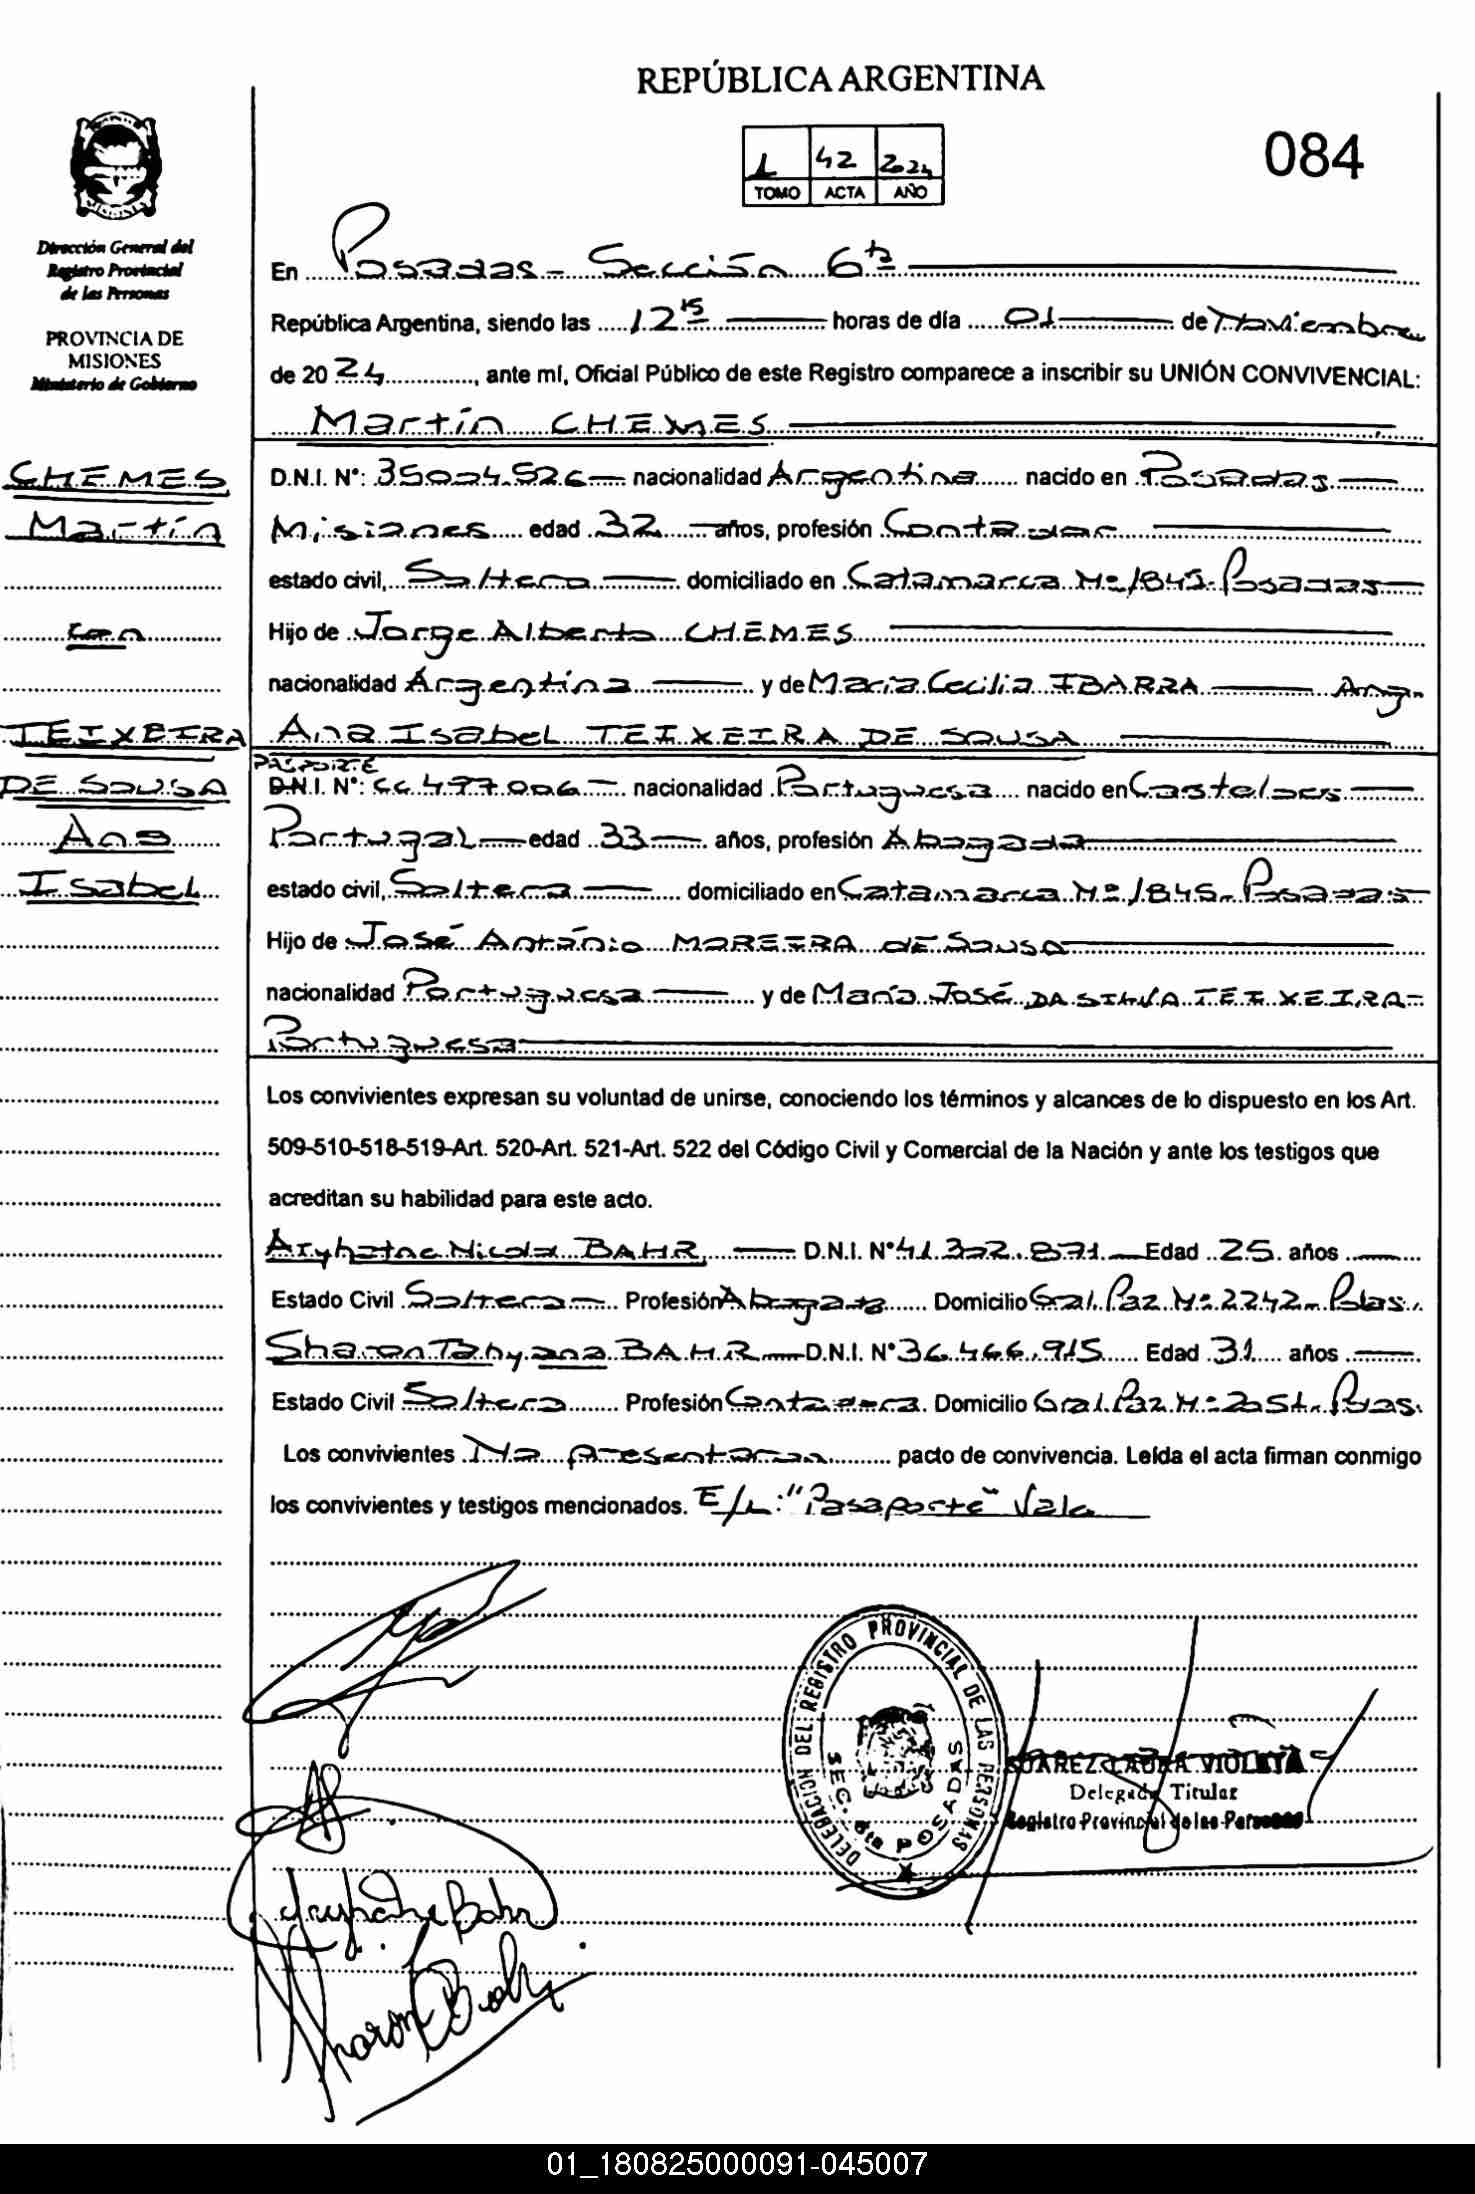 REPÚBLICA ARGENTINA
1 42 2024
TOMO ACTA AÑO
084
Dirección General del
Registro Provincial
de las Personas
PROVINCIA DE
MISIONES
Ministerio de Gobierno
En Posadas - Sección 6ta
República Argentina, siendo las 12 15 horas de día 01 de Noviembre
de 20 24, ante mí, Oficial Público de este Registro comparece a inscribir su UNIÓN CONVIVENCIAL:
Martín CHEMES
CHEMES
Martín
con
TEIXEIRA
DE SOUSA
Ana
Isabel
D.N.I. N°: 35.004.526 nacionalidad Argentina nacido en Posadas
Misiones edad 32 años, profesión Contador
estado civil, Soltero domiciliado en Catamarca N° 1845 - Posadas
Hijo de Jorge Alberto CHEMES
nacionalidad Argentina y de María Cecilia IBARRA Arg.
Ana Isabel TEIXEIRA DE SOUSA
PASPORTE
D.N.I. N°: CC 477.006 nacionalidad Portuguesa nacido en
Portugal edad 33 años, profesión Abogada
estado civil, Soltera domiciliado en Catamarca N° 1845 - Posadas
Hijo de José António MOREIRA DE SOUSA
nacionalidad Portuguesa y de María José DA SILVA TEIXEIRA -
Portuguesa
Los convivientes expresan su voluntad de unirse, conociendo los términos y alcances de lo dispuesto en los Art.
509-510-518-519-Art. 520-Art. 521-Art. 522 del Código Civil y Comercial de la Nación y ante los testigos que
acreditan su habilidad para este acto.
Nicole BAHR D.N.I. N° 41.302.871 Edad 25 años
Estado Civil Soltera Profesión Abogada Domicilio Gral. Paz N° 2242 - Pdas.
Sharon Tahyana BAHR D.N.I. N° 36.466.915 Edad 31 años
Estado Civil Soltera Profesión Contadora Domicilio Gral. Paz N° Pdas.
Los convivientes No presentaron pacto de convivencia. Leída el acta firman conmigo
los convivientes y testigos mencionados. E/L: "Pasaporte" Vale
DELEGACION DEL REGISTRO PROVINCIAL DE LAS PERSONAS
SEC. 6ta POSADAS
SUAREZ LAURA VIOLETA
Delegada Titular
Registro Provincial de las Personas
Bahr
Sharon Bahr
01_180825000091-045007